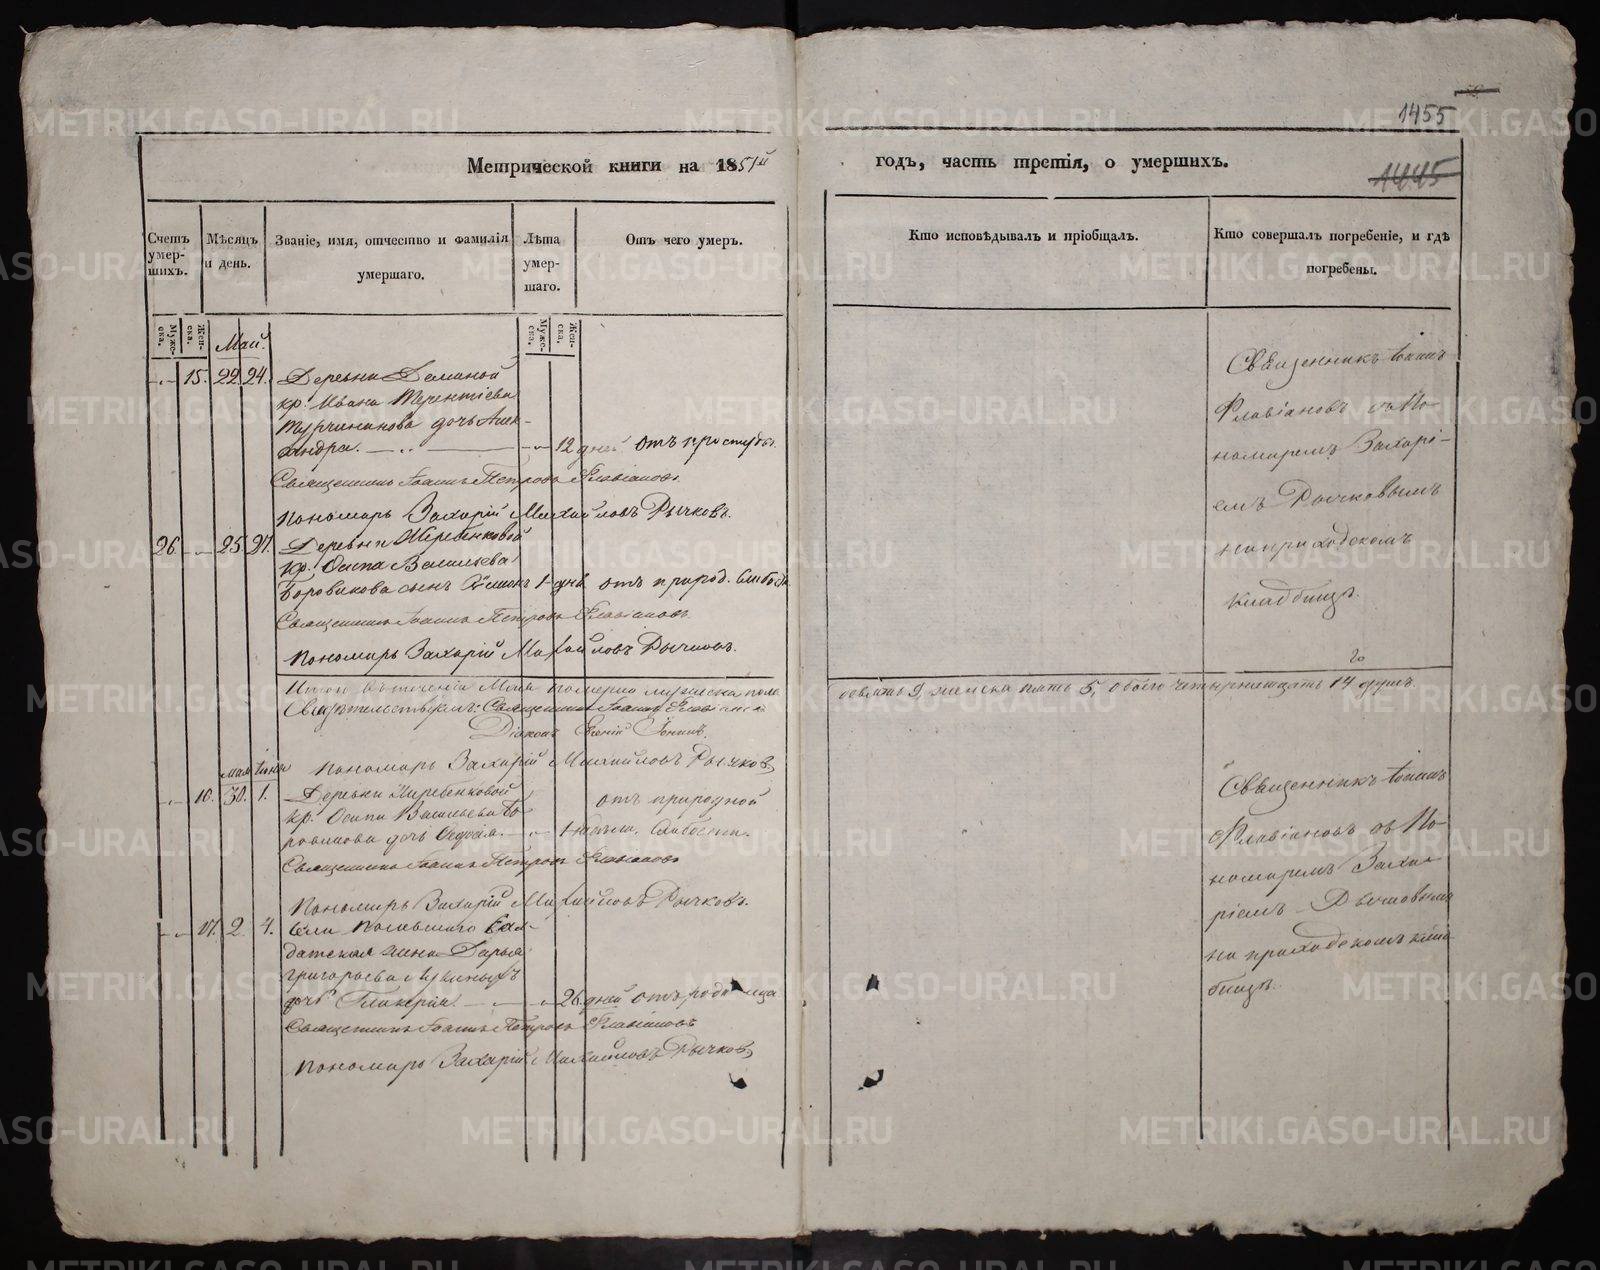 1455
Метрической книги на 1851й
годъ, часть третія, о умершихъ.
1445
Счетъ умер-
шихъ.
Мѣсяцъ
и день.
Званіе, имя, отчество и фамилія
умершаго.
Лѣта
умер-
шаго.
Отъ чего умеръ.
Кто исповѣдывалъ и пріобщалъ.
Кто совершалъ погребеніе, и гдѣ
погребены.
Муже-
ска.
Жен-
ска.
Муже-
ска.
Жен-
ска.
Май.
15. 22. 24. Деревни Деминой
кр. Ивана Терентіева
Турчинанова дочь Алек-
сандра. 12 дней отъ простуды.
Священникъ Іоаннъ Петровъ Флавіановъ
Пономарь Захарій Михайловъ Рычковъ.
26 25. 27. Деревни
кр. Осипа Васильева
Боровикова сынъ 1 дня отъ природ. слабости
Священникъ Іоаннъ Петровъ Флавіановъ
Пономарь Захарій Михайловъ Рычковъ.
Итого въ теченіи Мая померло мужеска пола
девять 9, женска пять 5, обоего четырнадцать 14 душъ.
Свидѣтельствуемъ: Священникъ Іоаннъ Флавіановъ
Діаконъ
Пономарь Захарій Михайловъ Рычковъ
маія Іюня
16. 30. 1. Деревни отъ природной
кр. Осипа Васильева Бо-
ровикова дочь Ѳедосія. 1 слабости.
Священникъ Іоаннъ Петровъ Флавіановъ
Пономарь Захарій Михайловъ Рычковъ.
17. 2 4. Села
датская жена Дарья
Григорьева
дочь Гликерія 26 дней отъ родимца
Священникъ Іоаннъ Петровъ Флавіановъ
Пономарь Захарій Михайловъ Рычковъ
Священникъ Іоаннъ
Флавіановъ съ По-
номаремъ Захарі-
емъ Рычковымъ
на приходскомъ
кладбищѣ.
Священникъ Іоаннъ
Флавіановъ съ По-
номаремъ Заха-
ріемъ Рычковымъ
на приходскомъ клад-
бищѣ.
METRIKI.GASO-URAL.RU